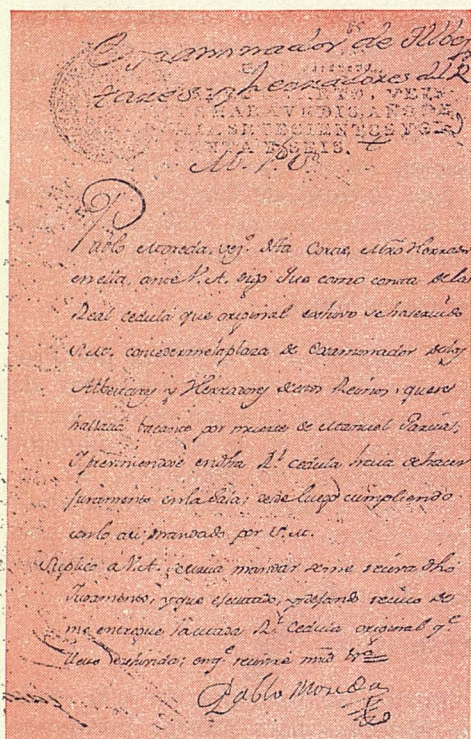 Examinador de Albey
tares y herradores del R
MARAVEDIS, AÑO DE
MIL SETECIENTOS Y
SEIS.
M. P. S.
Pablo Moneda, vezº. desta Corte, Mrõ Herrador
en ella, ante V. A. digo Que como consta de la
Real cedula que original exhivo se ha servido
S. M. concederme la plaza de Examinador de los
Albeitares y Herradores destos Reinos que se
hallava bacante por muerte de Manuel
I previniendose en dha Rl. cedula haia de hacer
juramento en la Sala; desde luego cumpliendo
con lo asi mandado por S. M.
Suplico a V. A. se sirva mandar se me reciva dho
Juramento, y que executado, y dejando recivo se
me entregue la citada Rl. cedula original qe.
llevo exhivida; en qe. recivire mrd
Pablo Moneda